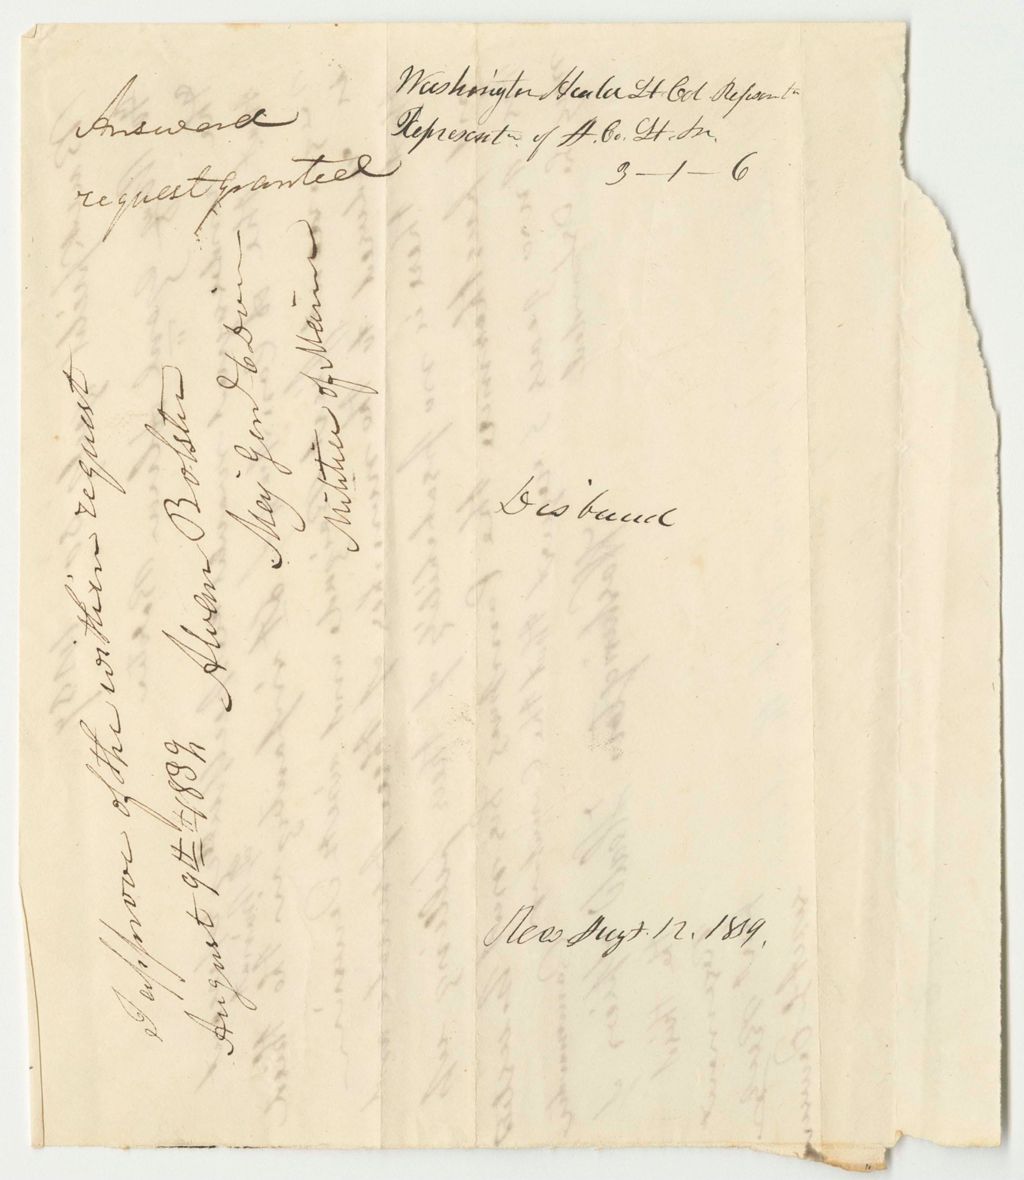 Answerd
request granted
Washington Heald Lt Col
Represent of A. Co. Lt. In.
3-1-6
I approve of the within request
August 9th 1839 Alvan Bolster
Maj Genl 6 Divn
Militia of Maine
Disband
Rec Augt. 12. 1839.